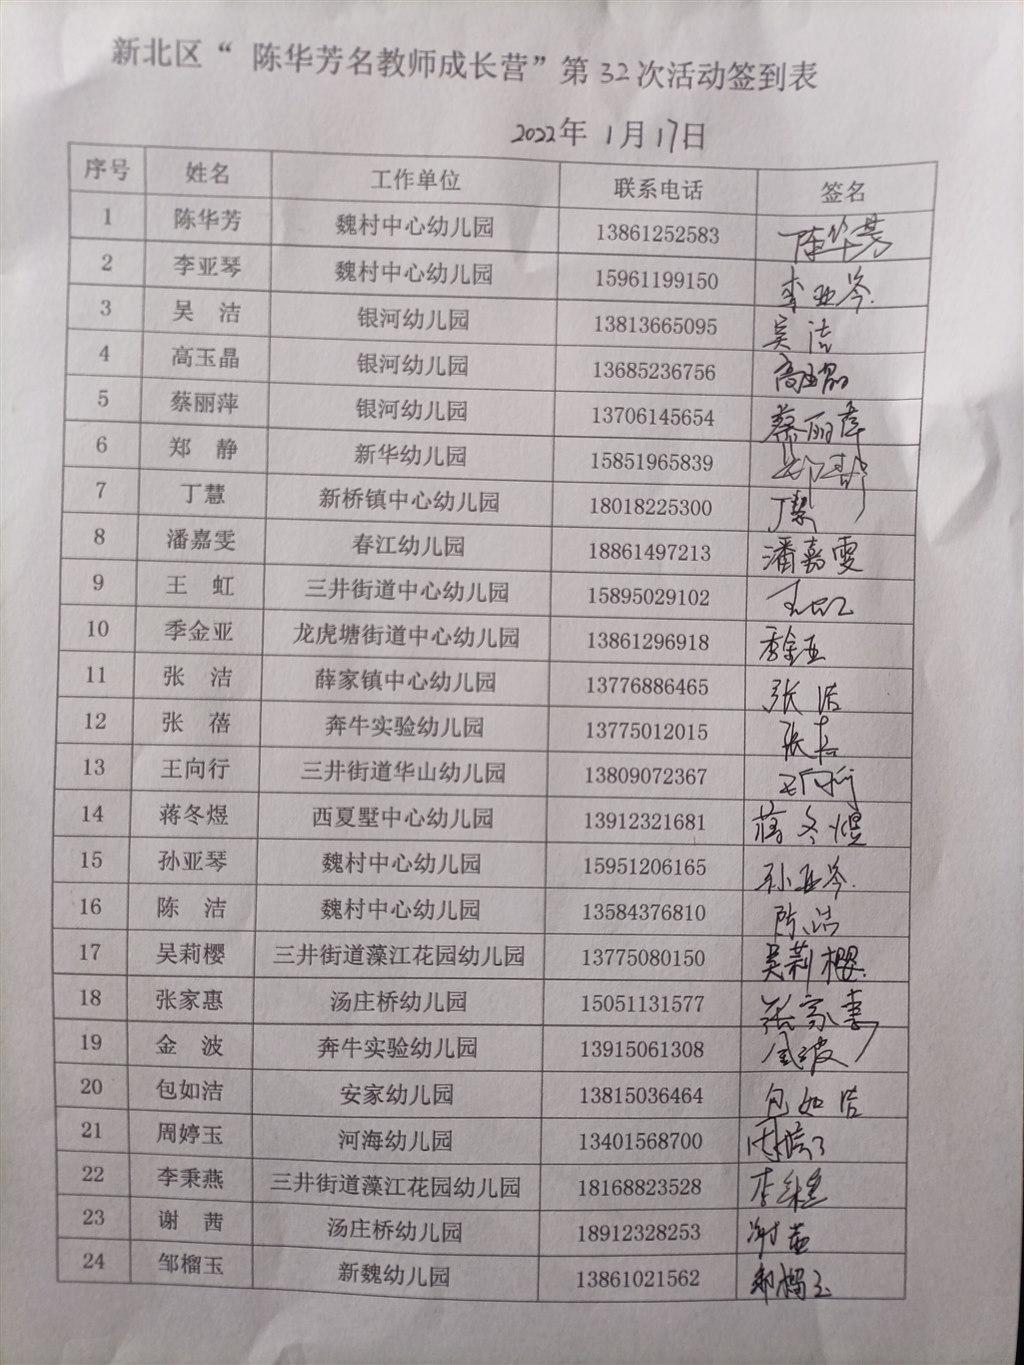 新北区“ 陈华芳名教师成长营”第 32 次活动签到表
2022年 1月 17日
序号 姓名 工作单位 联系电话 签名
1 陈华芳 魏村中心幼儿园 13861252583 陈华芳
2 李亚琴 魏村中心幼儿园 15961199150 李亚琴
3 吴 洁 银河幼儿园 13813665095 吴洁
4 高玉晶 银河幼儿园 13685236756 高玉晶
5 蔡丽萍 银河幼儿园 13706145654 蔡丽萍
6 郑 静 新华幼儿园 15851965839 郑静
7 丁慧 新桥镇中心幼儿园 18018225300 丁慧
8 潘嘉雯 春江幼儿园 18861497213 潘嘉雯
9 王 虹 三井街道中心幼儿园 15895029102 王虹
10 季金亚 龙虎塘街道中心幼儿园 13861296918 季金亚
11 张 洁 薛家镇中心幼儿园 13776886465 张洁
12 张 蓓 奔牛实验幼儿园 13775012015 张蓓
13 王向行 三井街道华山幼儿园 13809072367 王向行
14 蒋冬煜 西夏墅中心幼儿园 13912321681 蒋冬煜
15 孙亚琴 魏村中心幼儿园 15951206165 孙亚琴
16 陈 洁 魏村中心幼儿园 13584376810 陈洁
17 吴莉樱 三井街道藻江花园幼儿园 13775080150 吴莉樱
18 张家惠 汤庄桥幼儿园 15051131577 张家惠
19 金 波 奔牛实验幼儿园 13915061308 金波
20 包如洁 安家幼儿园 13815036464 包如洁
21 周婷玉 河海幼儿园 13401568700 周婷玉
22 李秉燕 三井街道藻江花园幼儿园 18168823528 李秉燕
23 谢 茜 汤庄桥幼儿园 18912328253 谢茜
24 邹榴玉 新魏幼儿园 13861021562 邹榴玉